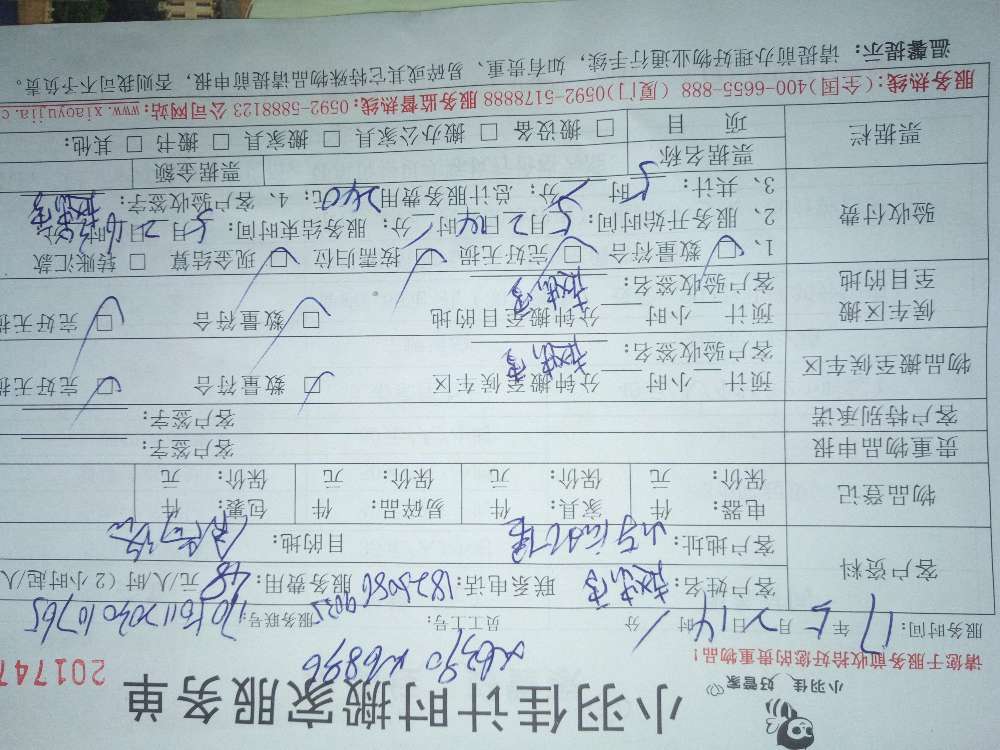 小羽佳 好管家
小羽佳计时搬家服务单
请您于服务前收拾好您的贵重物品！
201747
x6390 x6896
服务时间：17年5月2日14时 分 员工工号： 服务联号：
客户资料
客户姓名： 联系电话：1825086 9035 服务费用：48元/人/时（2小时起/人/
客户地址： 目的地：
物品登记
电器： 件 家具： 件 易碎品： 件 包裹： 件
保价： 元 保价： 元 保价： 元 保价： 元
贵重物品申报 客户签字：
客户特别承诺 客户签字：
物品搬至候车区
预计 小时 分钟搬至候车区 □ 数量符合 □ 完好无损
客户验收签名：
候车区搬至目的地
预计 小时 分钟搬至目的地 □ 数量符合 □ 完好无损
客户验收签名：
验收付费
1、□ 数量符合 □ 完好无损 □ 按需归位 □ 现金结算 □ 转账汇款
2、服务开始时间：5月2日14时 分；服务结束时间：5月2日 时 分
3、共计：5时 分；总计服务费用240元；4、客户验收签字：
票据栏
票据名称 票据金额
项目 □ 搬设备 □ 搬办公家具 □ 搬家具 □ 搬书 □ 其他：
服务热线：(全国)400-6655-888 (厦门)0592-5178888 服务监督热线：0592-5888123 公司网站：www.xiaoyujia.c
温馨提示：请提前办理好物业通行手续，如有贵重、易碎或其它特殊物品请提前申报，否则我司不予负责。